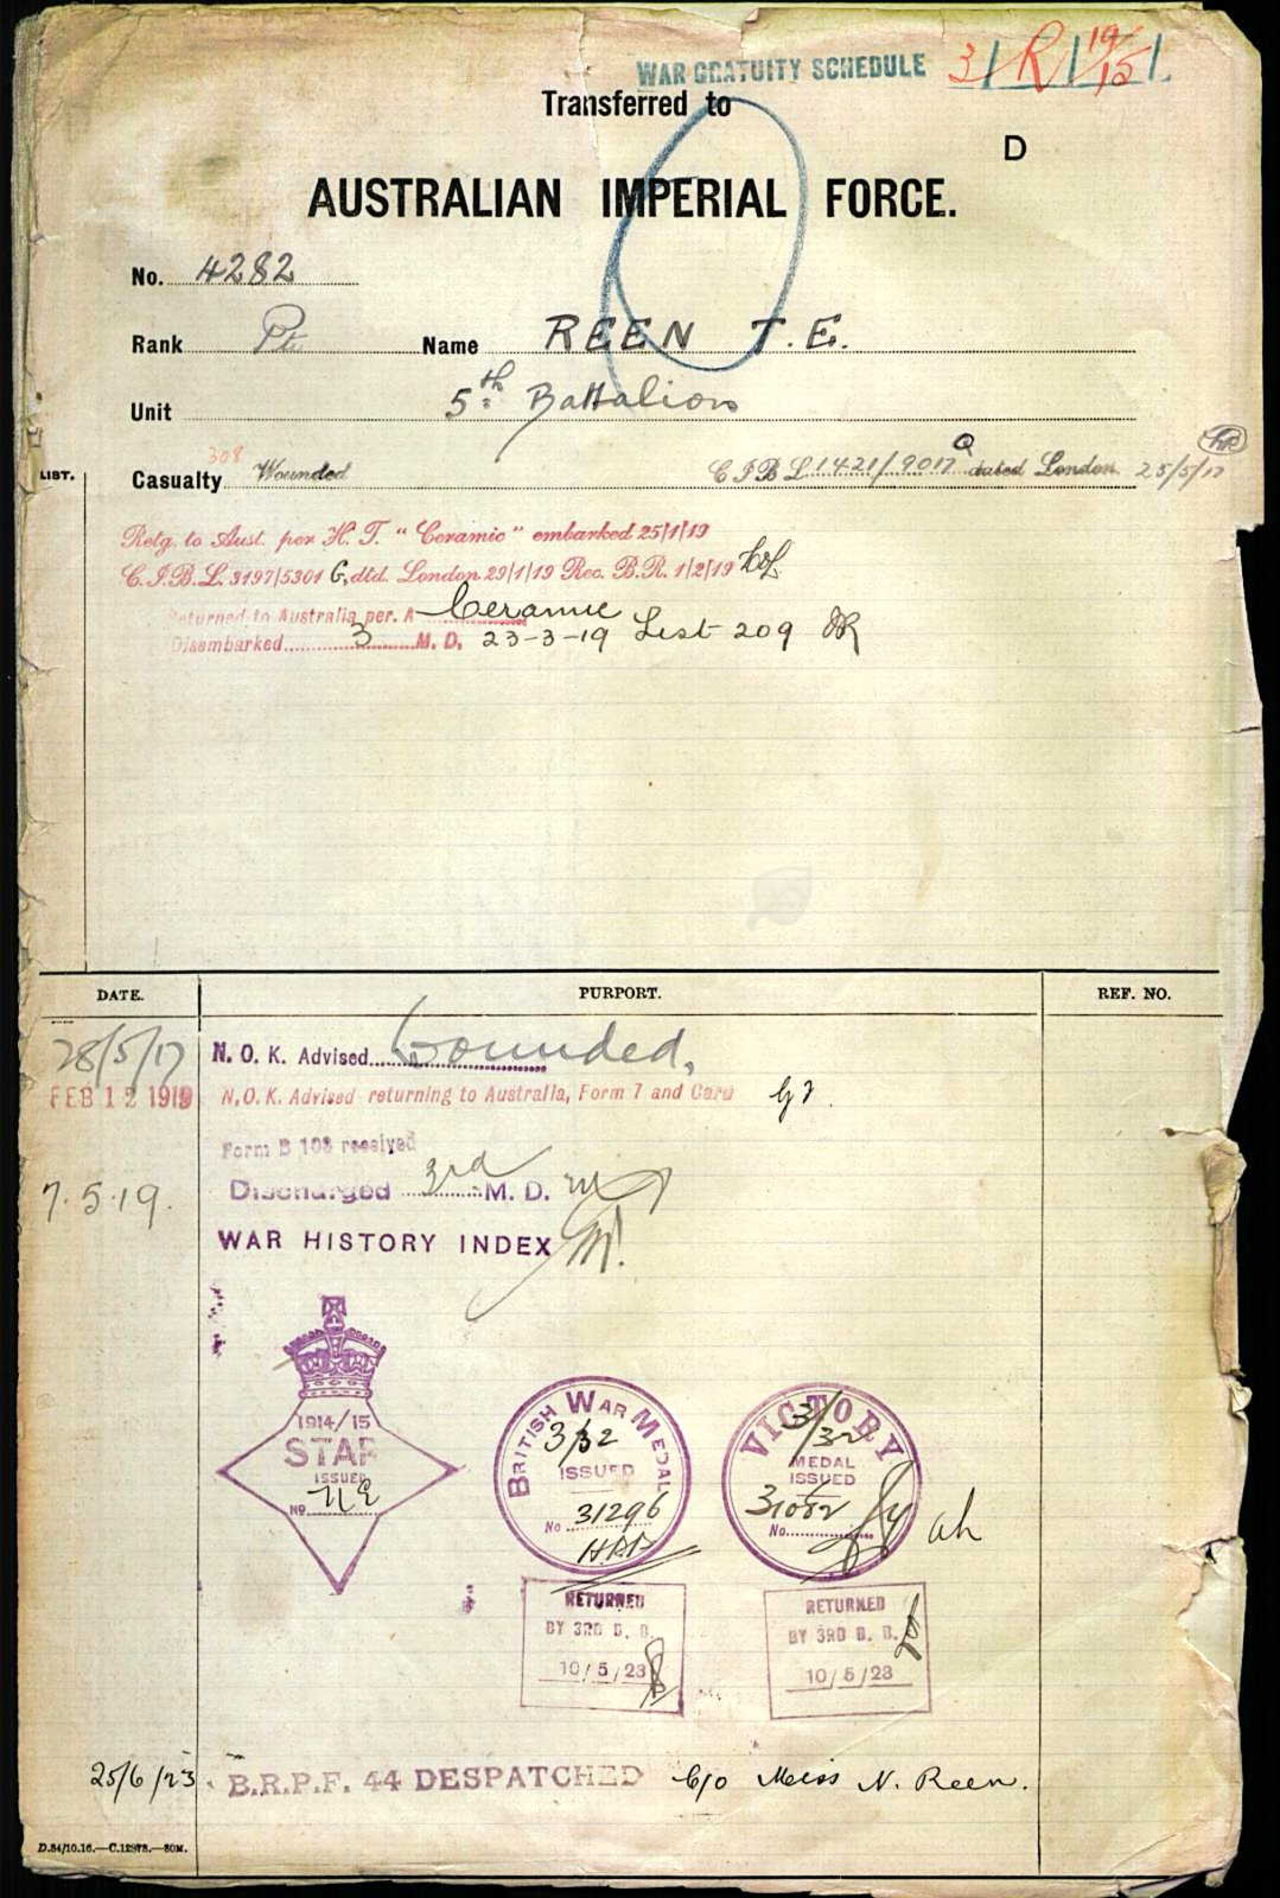 WAR GRATUITY SCHEDULE 3/R/19/15/1.
Transferred to
D
AUSTRALIAN IMPERIAL FORCE.
No. 4282
Rank Pte Name REEN T.E.
Unit 5th Battalion
LIST.
308
Casualty Wounded C I B L 1421/9017 Q dated London 25/5/17
Retg. to Aust. per H. T. "Ceramic" embarked 25/1/19
C.I.B.L. 3197/5301 G, dtd. London 29/1/19 Rec. B.R. 1/2/19
Returned to Australia per. A Ceramic
Disembarked 3 M. D. 23-3-19 List 209
DATE. PURPORT. REF. NO.
28/5/17 N. O. K. Advised Wounded,
FEB 12 1919 N.O.K. Advised returning to Australia, Form 7 and Card
Form B 103 received
7.5.19. Discharged 3rd M. D.
WAR HISTORY INDEX
1914/15
STAR
ISSUED
No 712
BRITISH WAR MEDAL
3/32
ISSUED
No 31296
VICTORY
3/32
MEDAL
ISSUED
31082
No.
ah
RETURNED
BY 3RD B. R.
10/5/23
RETURNED
BY 3RD B. R.
10/5/23
25/6/23. B.R.P.F. 44 DESPATCHED c/o Miss N. Reen.
D.84/10.16.—C.12978.—80M.